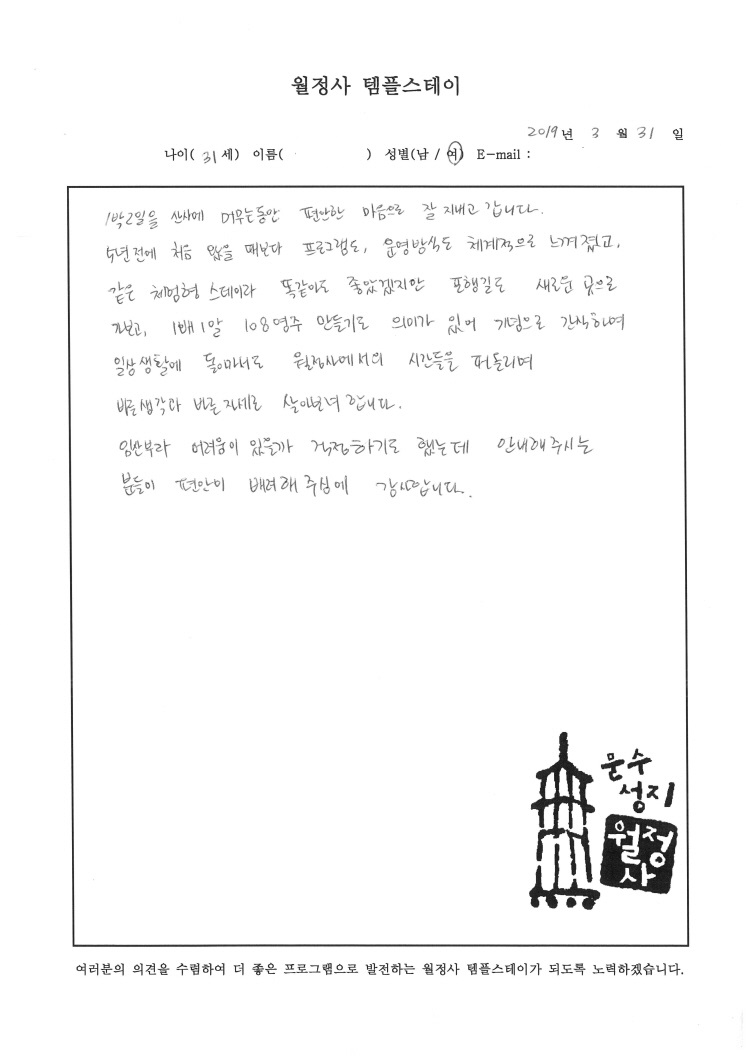 월정사 템플스테이
2019년 3월 31일
나이( 31세) 이름( ) 성별(남 / 여) E-mail :
1박2일을 산사에 머무는동안 편안한 마음으로 잘 지내고 갑니다.
5년전에 처음 왔을 때보다 프로그램도, 운영방식도 체계적으로 느껴졌고,
같은 체험형 스테이라 똑같아도 좋았겠지만 포행길도 새로운 곳으로
가보고, 1배 1알 108염주 만들기도 의미가 있어 기념으로 간직하며
일상생활에 돌아가서도 월정사에서의 시간들을 떠올리며
바른생각과 바른자세로 살아보려 합니다.
임산부라 어려움이 있을까 걱정하기도 했는데 안내해주시는
분들이 편안히 배려해 주심에 감사합니다.
문수
성지
월정
사
여러분의 의견을 수렴하여 더 좋은 프로그램으로 발전하는 월정사 템플스테이가 되도록 노력하겠습니다.